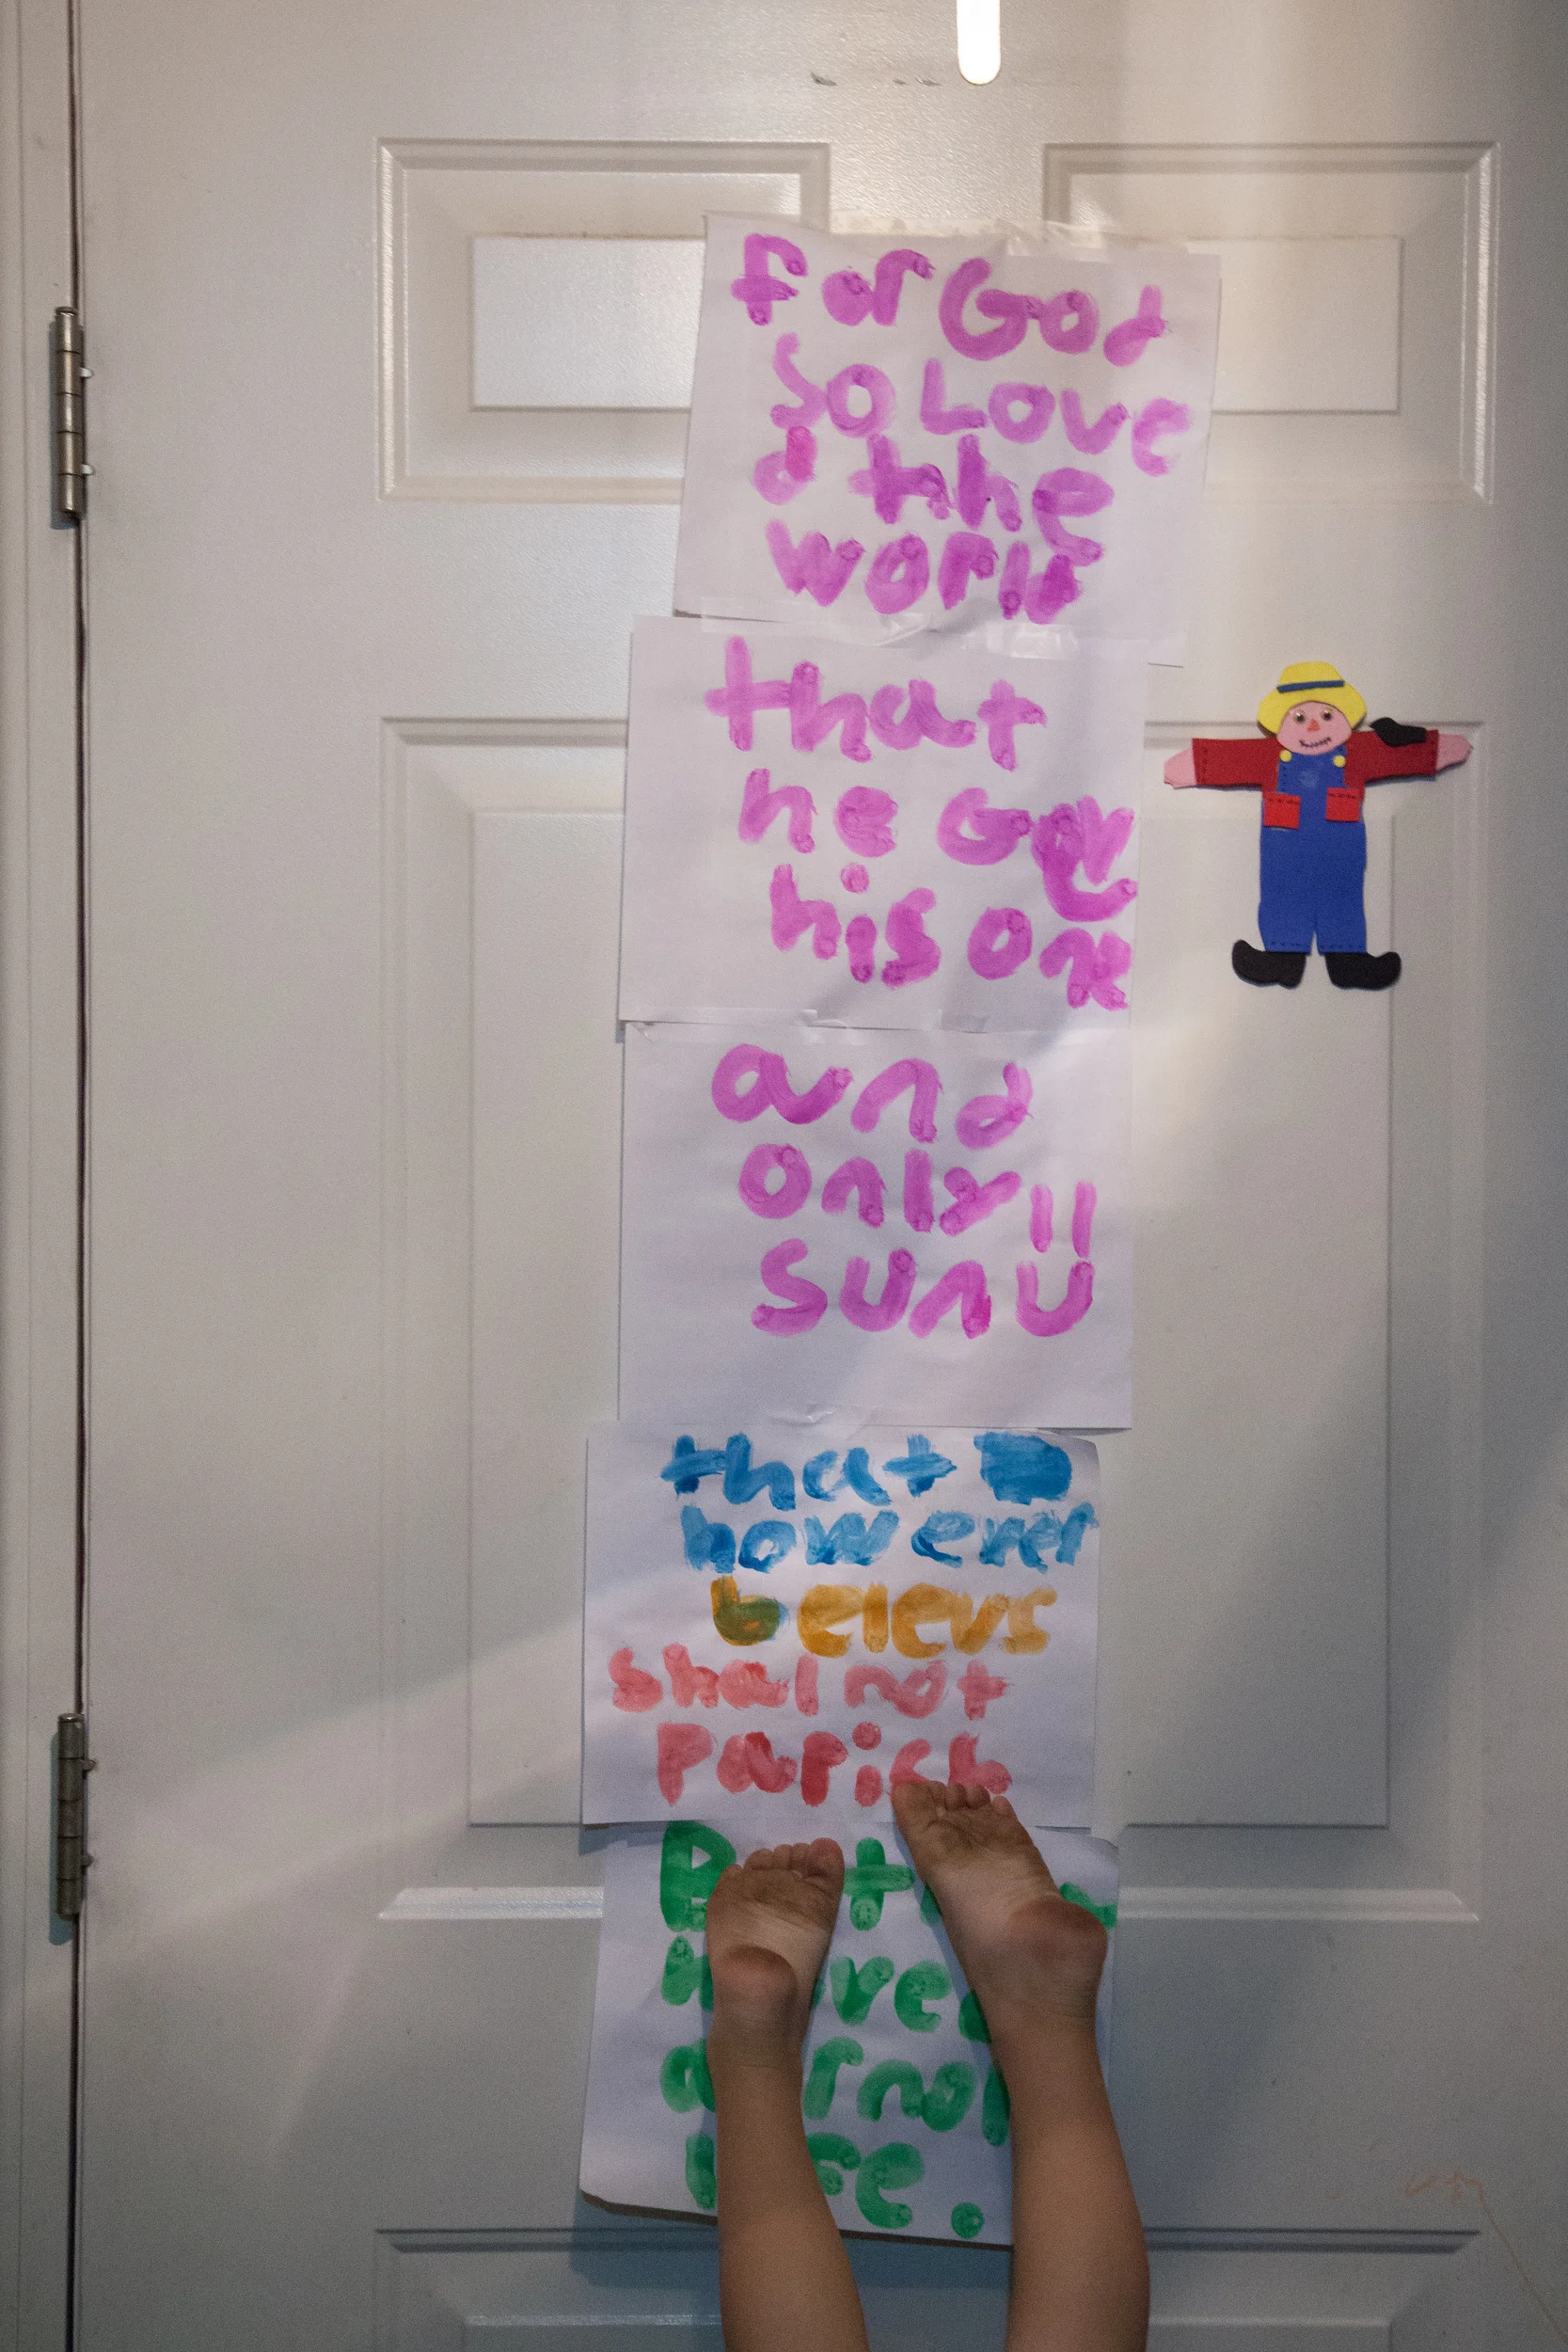 for God
so Love
d the
world
that
he Gav
his one
and
only
sun
that
however
belevs
shal not
parish
life.